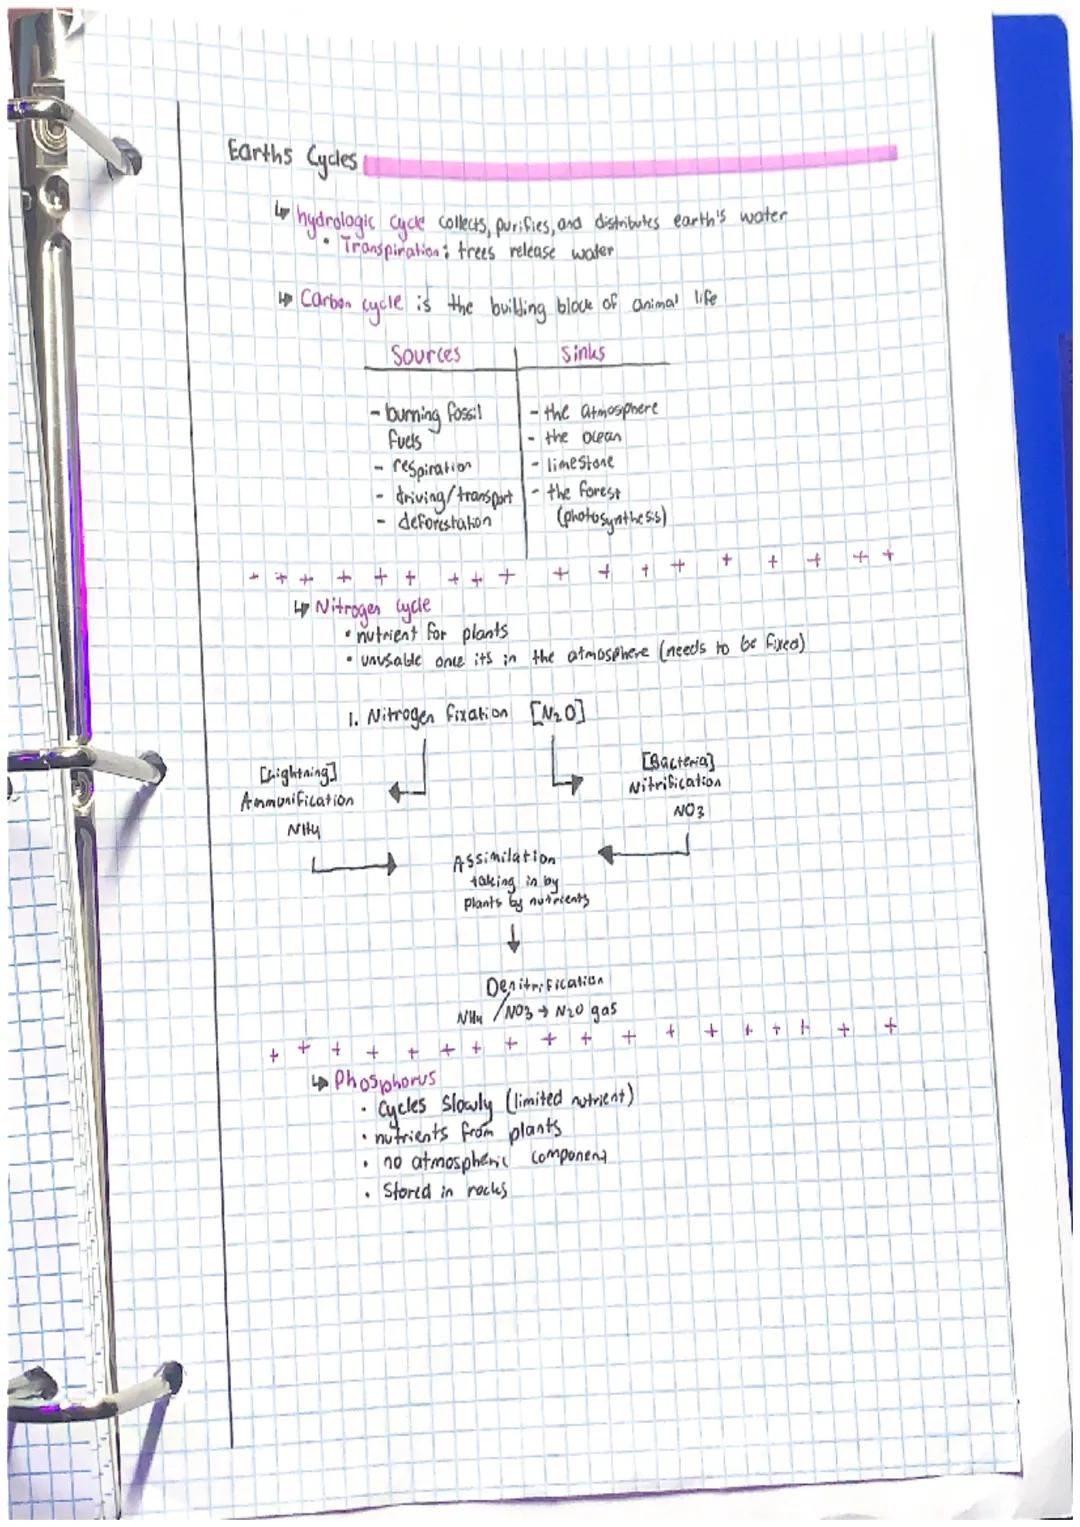 Earths Cycles
↳ hydrologic cycle collects, purifies, and distributes earth's water
• Transpiration: trees release water
↳ Carbon cycle is the building block of animal life
Sources sinks
- burning fossil fuels
- respiration
- driving/transport
- deforestation
- the atmosphere
- the ocean
- limestone
- the forest
(photosynthesis)
+ + + + + + + + + + + + + + + + + + +
↳ Nitrogen cycle
• nutrient for plants
• unusable once its in the atmosphere (needs to be fixed)
1. Nitrogen fixation [N2O]
[Lightning]
Ammonification
NH4
[Bacteria]
Nitrification
NO3
Assimilation
taking in by
plants by nutrients
↓
Denitrification
NH4 / NO3 → N2O gas
+ + + + + + + + + + + + + + + + + +
↳ Phosphorus
• Cycles Slowly (limited nutrient)
• nutrients from plants
• no atmospheric component
• Stored in rocks